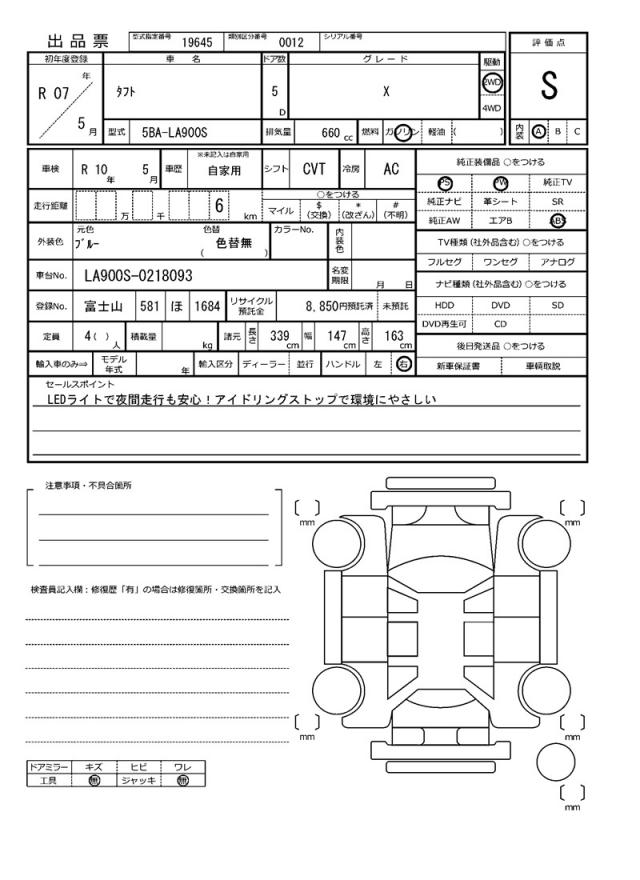 出品票
型式指定番号 19645 類別区分番号 0012 シリアル番号
評価点
S
内装 A B C
初年度登録 車名 ドア数 グレード 駆動
R 07 年 5 月
タフト
5 D
X
2WD
4WD
型式 5BA-LA900S 排気量 660 cc 燃料 ガソリン 軽油 ( )
車検 R 10 年 5 月 車歴 ※未記入は自家用 自家用 シフト CVT 冷房 AC
走行距離 万 千 6 km
○をつける
マイル $ (交換) * (改ざん) # (不明)
外装色 元色 ブルー 色替 色替無 ( ) カラーNo. 内装色
車台No. LA900S-0218093 名変期限 月 日
登録No. 富士山 581 ほ 1684 リサイクル預託金 8,850円預託済 未預託
定員 4 ( ) 人 積載量 kg 諸元 長さ 339 cm 幅 147 cm 高さ 163 cm
輸入車のみ⇒ モデル年式 年 輸入区分 ディーラー 並行 ハンドル 左 右
純正装備品 ○をつける
PS PW 純正TV
純正ナビ 革シート SR
純正AW エアB ABS
TV種類 (社外品含む) ○をつける
フルセグ ワンセグ アナログ
ナビ種類 (社外品含む) ○をつける
HDD DVD SD
DVD再生可 CD
後日発送品 ○をつける
新車保証書 車輌取説
セールスポイント
LEDライトで夜間走行も安心！アイドリングストップで環境にやさしい
注意事項・不具合箇所
検査員記入欄：修復歴「有」の場合は修復箇所・交換箇所を記入
ドアミラー キズ ヒビ ワレ
工具 無 ジャッキ 無
[ ] mm
[ ] mm
[ ] mm
[ ] mm
[ ] mm